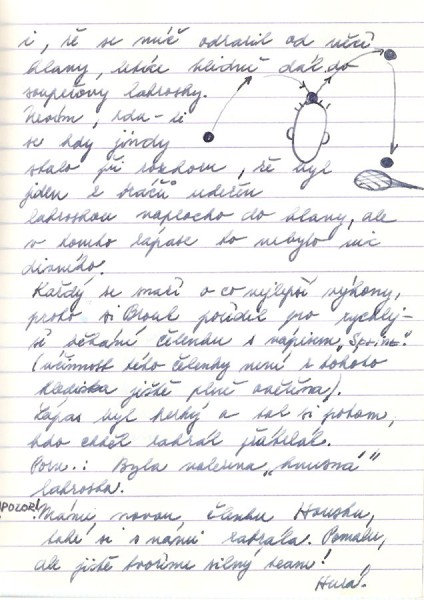 i, že se míč odrazil od něčí
hlavy, letíce klidně dál do
soupeřovy lakrosky.
Nevím, zda-li
se kdy jindy
stalo při rozhozu, že byl
jeden z hráčů udeřen
lakroskou naplocho do hlavy, ale
v tomto zápase to nebylo nic
divného.
Každý se snaží o co nejlepší výkony,
proto si Brouk pořídil pro rychlej-
ší běhání čelenku s nápisem „Sprint“.
(účinnost této čelenky není z tohoto
hlediska ještě plně ověřena).
Zápas byl hezký a tak si potom,
kdo chtěl zahrál přátelák.
Pozn.: Byla nalezena „hnusná“
lakroska.
POZOR! Máme novou členku Housku,
také si s námi zahrála. Pomalu,
ale jistě tvoříme silný team!
Hurá!